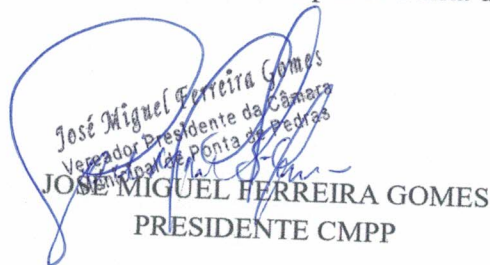 José Miguel Ferreira Gomes
Vereador Presidente da Câmara
Municipal de Ponta de Pedras
JOSÉ MIGUEL FERREIRA GOMES
PRESIDENTE CMPP